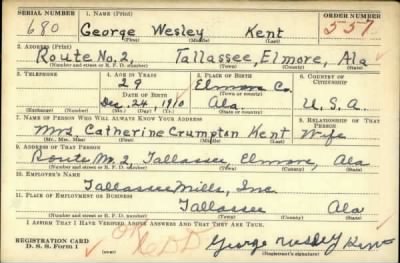 SERIAL NUMBER 1. NAME (Print) ORDER NUMBER
680 George Wesley Kent 557
(First) (Middle) (Last)
2. ADDRESS (Print)
Route No. 2, Tallassee, Elmore, Ala
(Number and street or R. F. D. number) (Town) (County) (State)
3. TELEPHONE 4. AGE IN YEARS 5. PLACE OF BIRTH 6. COUNTRY OF CITIZENSHIP
29 Elmore Co.
DATE OF BIRTH
Dec. 24, 1910 Ala U.S.A.
(Exchange) (Number) (Mo.) (Day) (Yr.) (State or country)
7. NAME OF PERSON WHO WILL ALWAYS KNOW YOUR ADDRESS 8. RELATIONSHIP OF THAT PERSON
Mrs. Catherine Crumpton Kent Wife
(Mr., Mrs., Miss) (First) (Middle) (Last)
9. ADDRESS OF THAT PERSON
Route No. 2, Tallassee, Elmore, Ala
(Number and street or R. F. D. number) (Town) (County) (State)
10. EMPLOYER'S NAME
Tallassee Mills, Inc
11. PLACE OF EMPLOYMENT OR BUSINESS
Tallassee Ala
(Number and street or R. F. D. number) (Town) (County) (State)
I AFFIRM THAT I HAVE VERIFIED ABOVE ANSWERS AND THAT THEY ARE TRUE.
REGISTRATION CARD
D. S. S. Form 1 (over) George Wesley Kent
(Registrant's signature)